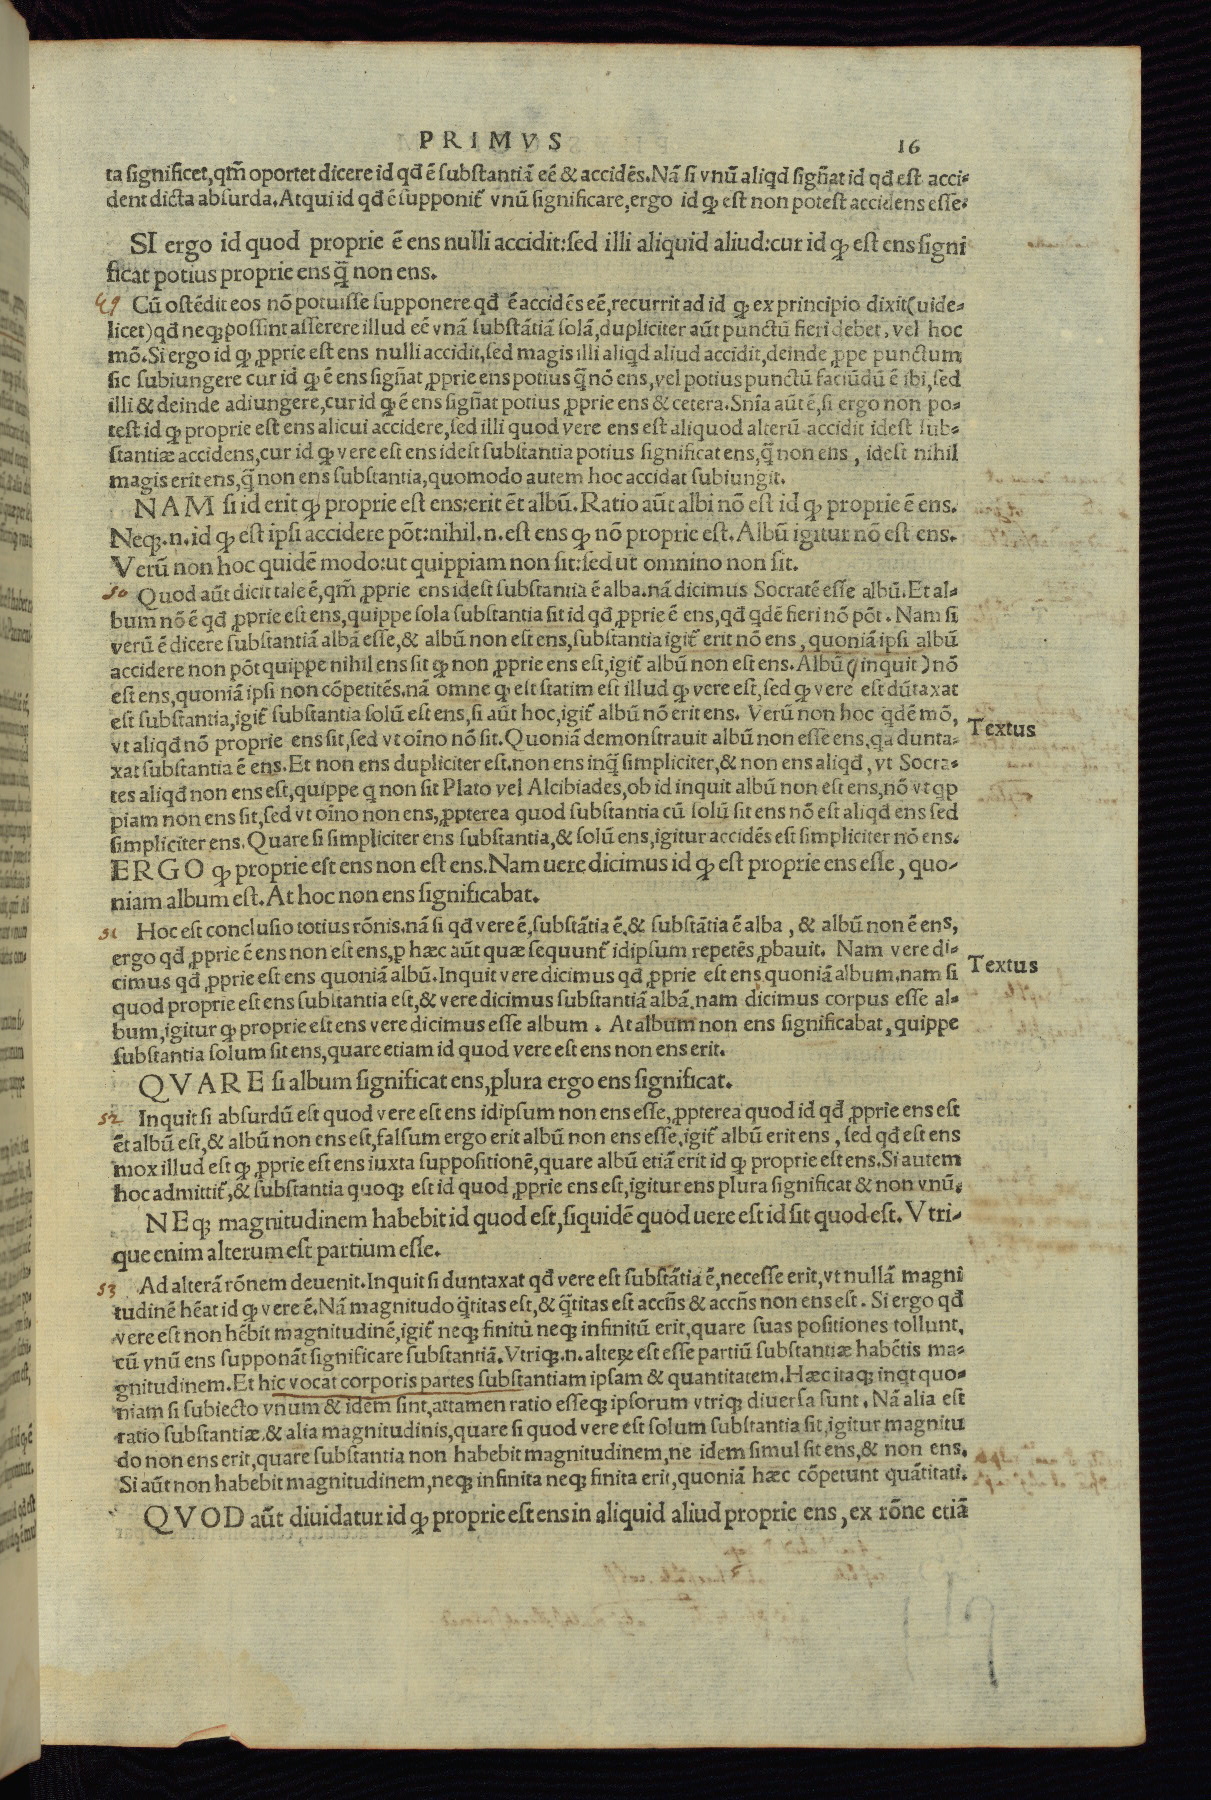 PRIMVS
16
ta significet,qm̃ oportet dicere id qđ ẽ substantiã eẽ & accidẽs.Nã si vnũ aliqđ signat̃ id qđ est acci-
dent dicta absurda.Atqui id qđ ẽ supponit̃ vnũ significare,ergo id qđ est non potest accidens esse.
SI ergo id quod proprie ẽ ens nulli accidit:sed illi aliquid aliud:cur id qđ est ens signi
ficat potius proprie ens q̃ non ens.
49 Cũ ostẽdit eos nõ potuisse supponere qđ ẽ accidẽs eẽ,recurrit ad id qđ ex principio dixit(uide-
licet)qđ neqꝫ possint asserere illud eẽ vnã substãtiã solã,dupliciter aũt punctũ fieri debet, vel hoc
mõ.Si ergo id qđ ꝓprie est ens nulli accidit,sed magis illi aliqd aliud accidit,deinde ꝓpe punctum
sic subiungere cur id qđ ẽ ens signat̃ ꝓprie ens potius q̃ nõ ens,vel potius punctũ faciũdũ ẽ ibi,sed
illi & deinde adiungere,cur id qđ ẽ ens signat̃ potius ꝓprie ens & cetera.Snĩa aũt ẽ,si ergo non po-
test id qđ proprie est ens alicui accidere,sed illi quod vere ens est aliquod alterũ accidit idest sub-
stantiæ accidens,cur id qđ vere est ens idest substantia potius significat ens,q̃ non ens, idest nihil
magis erit ens,q̃ non ens substantia,quomodo autem hoc accidat subiungit.
NAM si id erit qđ proprie est ens:erit ẽt albũ. Ratio aũt albi nõ est id qđ proprie ẽ ens.
Neqꝫ.n.id qđ est ipsi accidere põt:nihil.n.est ens qđ nõ proprie est. Albũ igitur nõ est ens.
Verũ non hoc quidẽ modo:ut quippiam non sit:sed ut omnino non sit.
50 Quod aũt dicit tale ẽ,qm̃ ꝓprie ens idest substantia ẽ alba.nã dicimus Socratẽ esse albũ. Et al-
bum nõ ẽ qđ ꝓprie est ens,quippe sola substantia sit id qđ ꝓprie ẽ ens,qđ qdẽ fieri nõ põt. Nam si
verũ ẽ dicere substantiã albã esse,& albũ non est ens,substantia igit̃ erit nõ ens, quoniã ipsi albũ
accidere non põt quippe nihil ens sit qđ non ꝓprie ens est,igit̃ albũ non est ens. Albũ(inquit)nõ
est ens,quoniã ipsi non cõpetitẽs.nã omne qđ est statim est illud qđ vere est,sed qđ vere est dũtaxat
est substantia,igit̃ substantia solũ est ens,si aũt hoc,igit̃ albũ nõ erit ens. Verũ non hoc qdẽ mõ,
Textus
vt aliqđ nõ proprie ens sit,sed vt oĩno nõ sit. Quoniã demonstrauit albũ non esse ens,qa dunta-
xat substantia ẽ ens.Et non ens dupliciter est.non ens inq̃ simpliciter,& non ens aliqđ, vt Socra-
tes aliqđ non ens est,quippe q non sit Plato vel Alcibiades,ob id inquit albũ non est ens,nõ vt qp
piam non ens sit,sed vt oĩno non ens,ꝓpterea quod substantia cũ solũ sit ens nõ est aliqđ ens sed
simpliciter ens.Quare si simpliciter ens substantia,& solũ ens,igitur accidẽs est simpliciter nõ ens.
ERGO qđ proprie est ens non est ens. Nam uere dicimus id qđ est proprie ens esse, quo-
niam album est. At hoc non ens significabat.
51 Hoc est conclusio totius rõnis.nã si qđ vere ẽ,substãtia ẽ,& substãtia ẽ alba, & albũ non ẽ ens,
ergo qđ ꝓprie ẽ ens non est ens,p hæc aũt quæ sequunt̃ idipsum repetẽs ꝓbauit. Nam vere di-
Textus
cimus qđ ꝓprie est ens quoniã albũ.Inquit vere dicimus qđ ꝓprie est ens quoniã album.nam si
quod proprie est ens substantia est,& vere dicimus substantiã albã.nam dicimus corpus esse al-
bum,igitur qđ proprie est ens vere dicimus esse album. At album non ens significabat, quippe
substantia solum sit ens,quare etiam id quod vere est ens non ens erit.
QVARE si album significat ens,plura ergo ens significat.
52 Inquit si absurdũ est quod vere est ens idipsum non ens esse,ꝓpterea quod id qđ ꝓprie ens est
ẽt albũ est,& albũ non ens est,falsum ergo erit albũ non ens esse,igit̃ albũ erit ens, sed qđ est ens
mox illud est qđ ꝓprie est ens iuxta suppositionẽ,quare albũ etiã erit id qđ proprie est ens.Si autem
hoc admittit̃,& substantia quoqꝫ est id quod ꝓprie ens est,igitur ens plura significat & non vnũ.
NEqꝫ magnitudinem habebit id quod est,siquidẽ quod uere est id sit quod est. Vtri-
que enim alterum est partium esse.
53 Ad alterã rõnem deuenit.Inquit si duntaxat qđ vere est substãtia ẽ,necesse erit,vt nullã magni
tudinẽ hẽat id qđ vere ẽ.Nã magnitudo q̃titas est,& q̃titas est accñs & accñs non ens est. Si ergo qđ
vere est non hẽbit magnitudinẽ,igit̃ neqꝫ finitũ neqꝫ infinitũ erit,quare suas positiones tollunt,
cũ vnũ ens supponãt significare substantiã.Vtriqꝫ.n.alteꝝ est esse partiũ substantiæ habẽtis ma-
gnitudinem.Et hic vocat corporis partes substantiam ipsam & quantitatem.Hæc itaqꝫ inqt quo-
niam si subiecto vnum & idem sint,attamen ratio esseqꝫ ipsorum vtriqꝫ diuersa sunt. Nã alia est
ratio substantiæ,& alia magnitudinis,quare si quod vere est solum substantia sit,igitur magnitu
do non ens erit,quare substantia non habebit magnitudinem,ne idem simul sit ens,& non ens.
Si aũt non habebit magnitudinem,neqꝫ infinita neqꝫ finita erit,quoniã hæc cõpetunt quãtitati.
QVOD aũt diuidatur id qđ proprie est ens in aliquid aliud proprie ens, ex rõne etiã